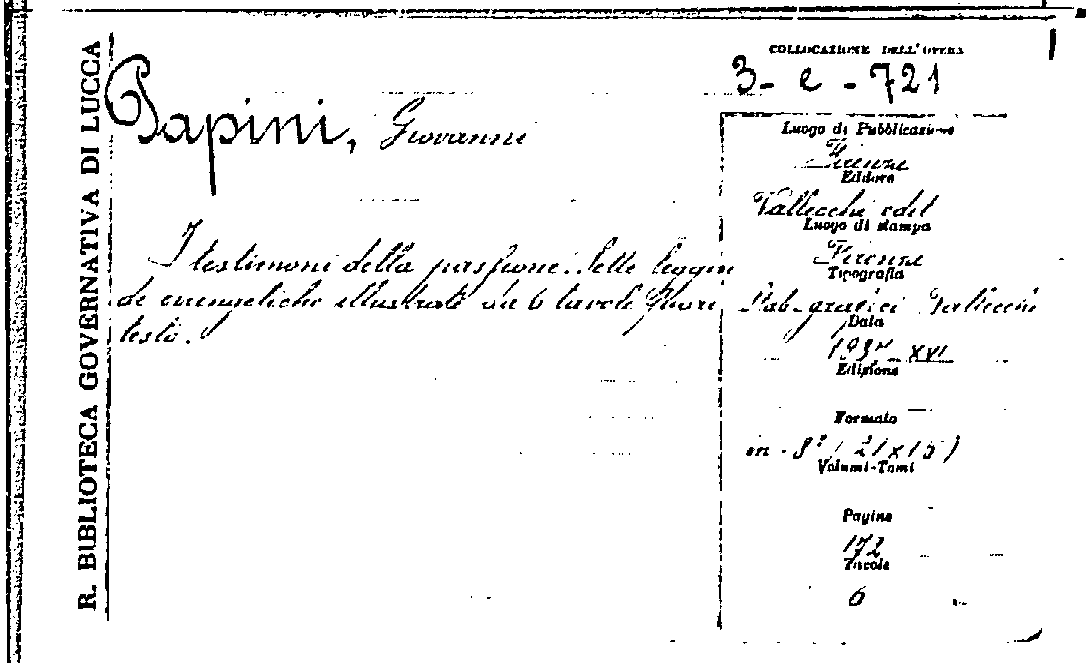 R. BIBLIOTECA GOVERNATIVA DI LUCCA
COLLOCAZIONE DELL'OPERA
3-e-721
Papini, Giovanni
I testimoni della passione. Sette leggen
de evangeliche illustrate da 6 tavole fuori
testo.
Luogo di Pubblicazione
Firenze
Editore
Vallecchi edit
Luogo di stampa
Firenze
Tipografia
Stab-grafici Vallecchi
Data
1937 XVI
Edizione
Formato
in-8° (21x15)
Volumi-Tomi
Pagine
172
Tavole
6